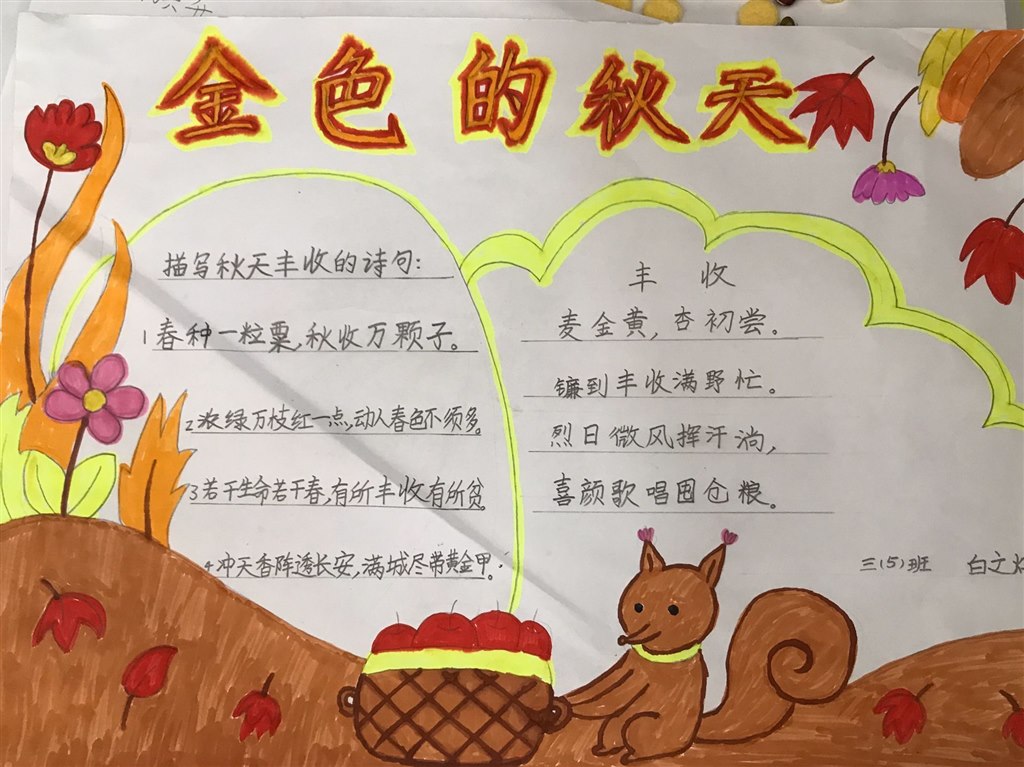 金色的秋天
描写秋天丰收的诗句:
1春种一粒粟,秋收万颗子。
2浓绿万枝红一点,动人春色不须多。
3若干生命若干春,有所丰收有所贫。
4冲天香阵透长安,满城尽带黄金甲。
丰 收
麦金黄,杏初尝。
镰到丰收满野忙。
烈日微风挥汗淌,
喜颜歌唱囤仓粮。
三(5)班 白文